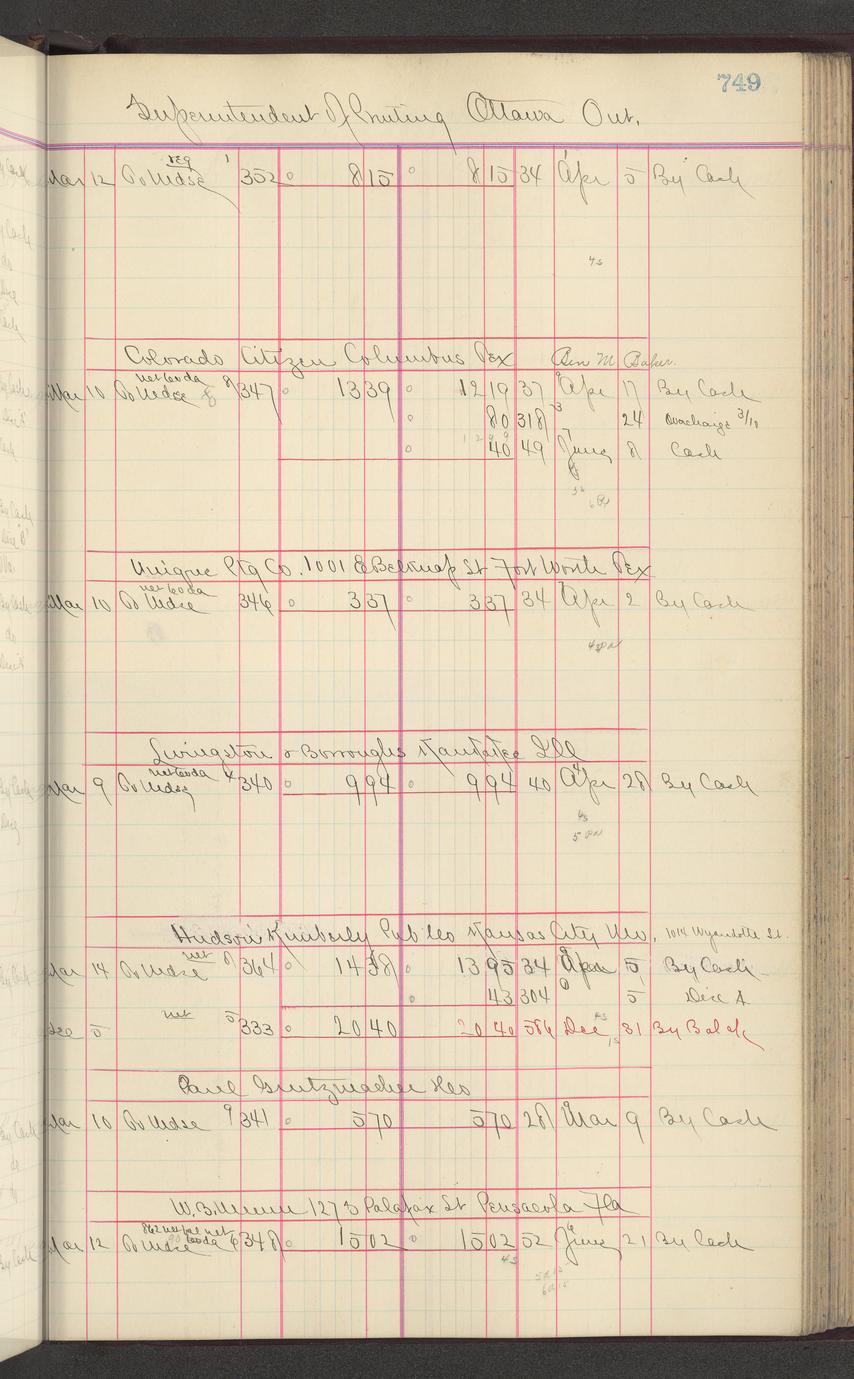 749
Superintendent of Printing Ottawa Ont.
req 1
Mar 12 To Mdse 352 8 15 8 15 34 Apr 5 By Cash
4s
Colorado Citizen Columbus Tex Ben M Baker.
net 60 da 8
Mar 10 To Mdse 347 13 39 12 19 37 Apr 17 By Cash
80 318 24 Overcharge 3/10
40 49 June 8 Cash
Unique Ptg Co. 1001 E Belknap St Fort Worth Tex
net 60 da
Mar 10 To Mdse 346 3 37 3 37 34 Apr 2 By Cash
Livingston & Borroughs Kankakee Ill
net 60 da 4
Mar 9 To Mdse 340 9 94 9 94 40 Apr 28 By Cash
4s
Hudson Kimberly Pub Co Kansas City Mo. 1014 Wyandotte St.
net 8
Mar 14 To Mdse 364 14 38 13 95 34 Apr 5 By Cash
43 304 5 Disc A
net 5
Dec 5 333 20 40 20 40 586 Dec 31 By Bal
Paul Grutzmacher
Mar 10 To Mdse 9 341 5 70 5 70 28 Mar 9 By Cash
W. B. 127 S Palafox St Pensacola Fla
net 60 da 6
Mar 12 To Mdse 348 15 02 15 02 52 June 21 By Cash
4s